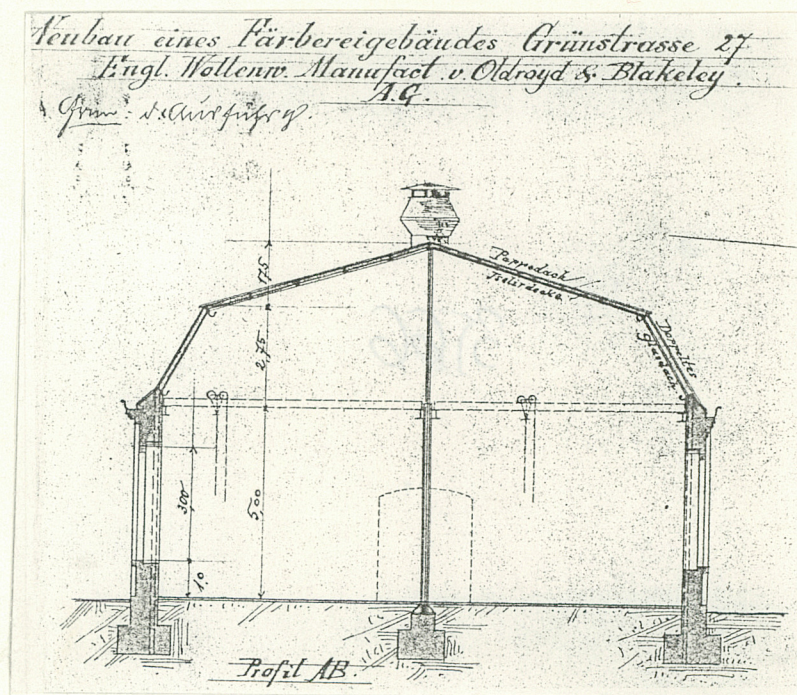 Neubau eines Färbereigebäudes Grünstrasse 27
Engl. Wollenw. Manufact. v. Oldroyd & Blakeley.
A.G.
d. Ausführg.
1,75
Pappdach
Isolirdecke
2,75
Doppeltes
Glasdach
3,00
5,00
1,0
Profil AB.